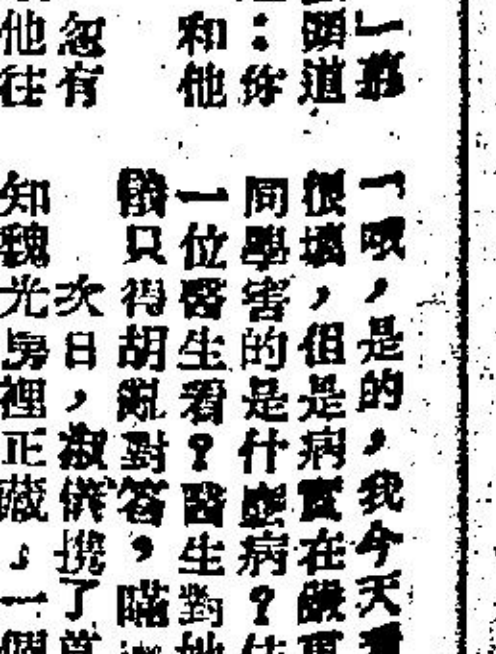 」
頭道
：你
和他
忽有
他往
「哦，是的，我今天看
很壞，但是病實在
同學害的是什麼病？
一位醫生看？醫生對她
儀只得胡亂對答，瞞
次日，淑儀携了
知魏光房裡正藏一個